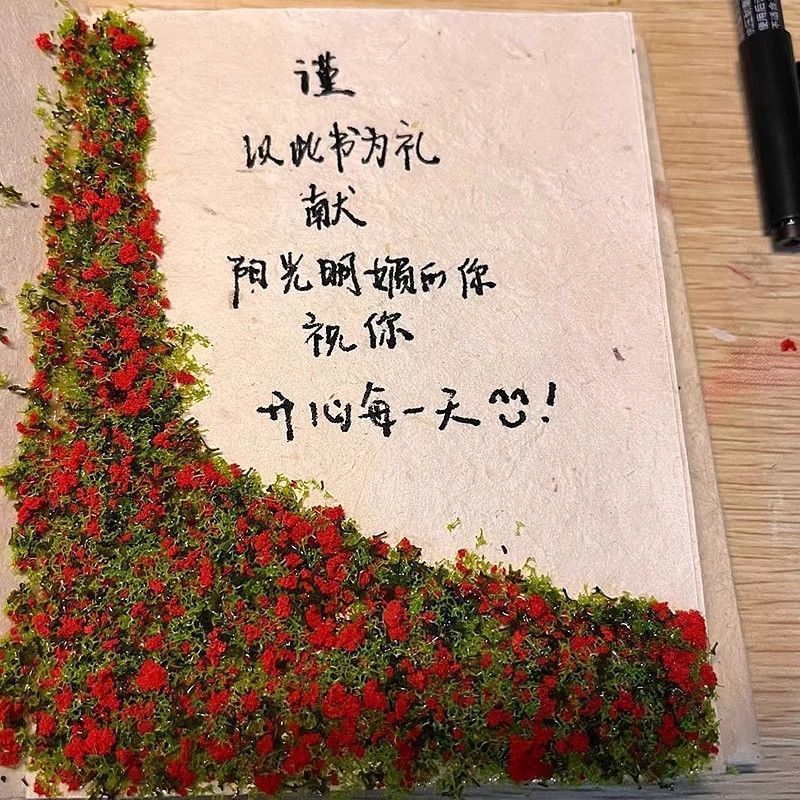 谨
以此书为礼
献
阳光明媚的你
祝你
开心每一天!